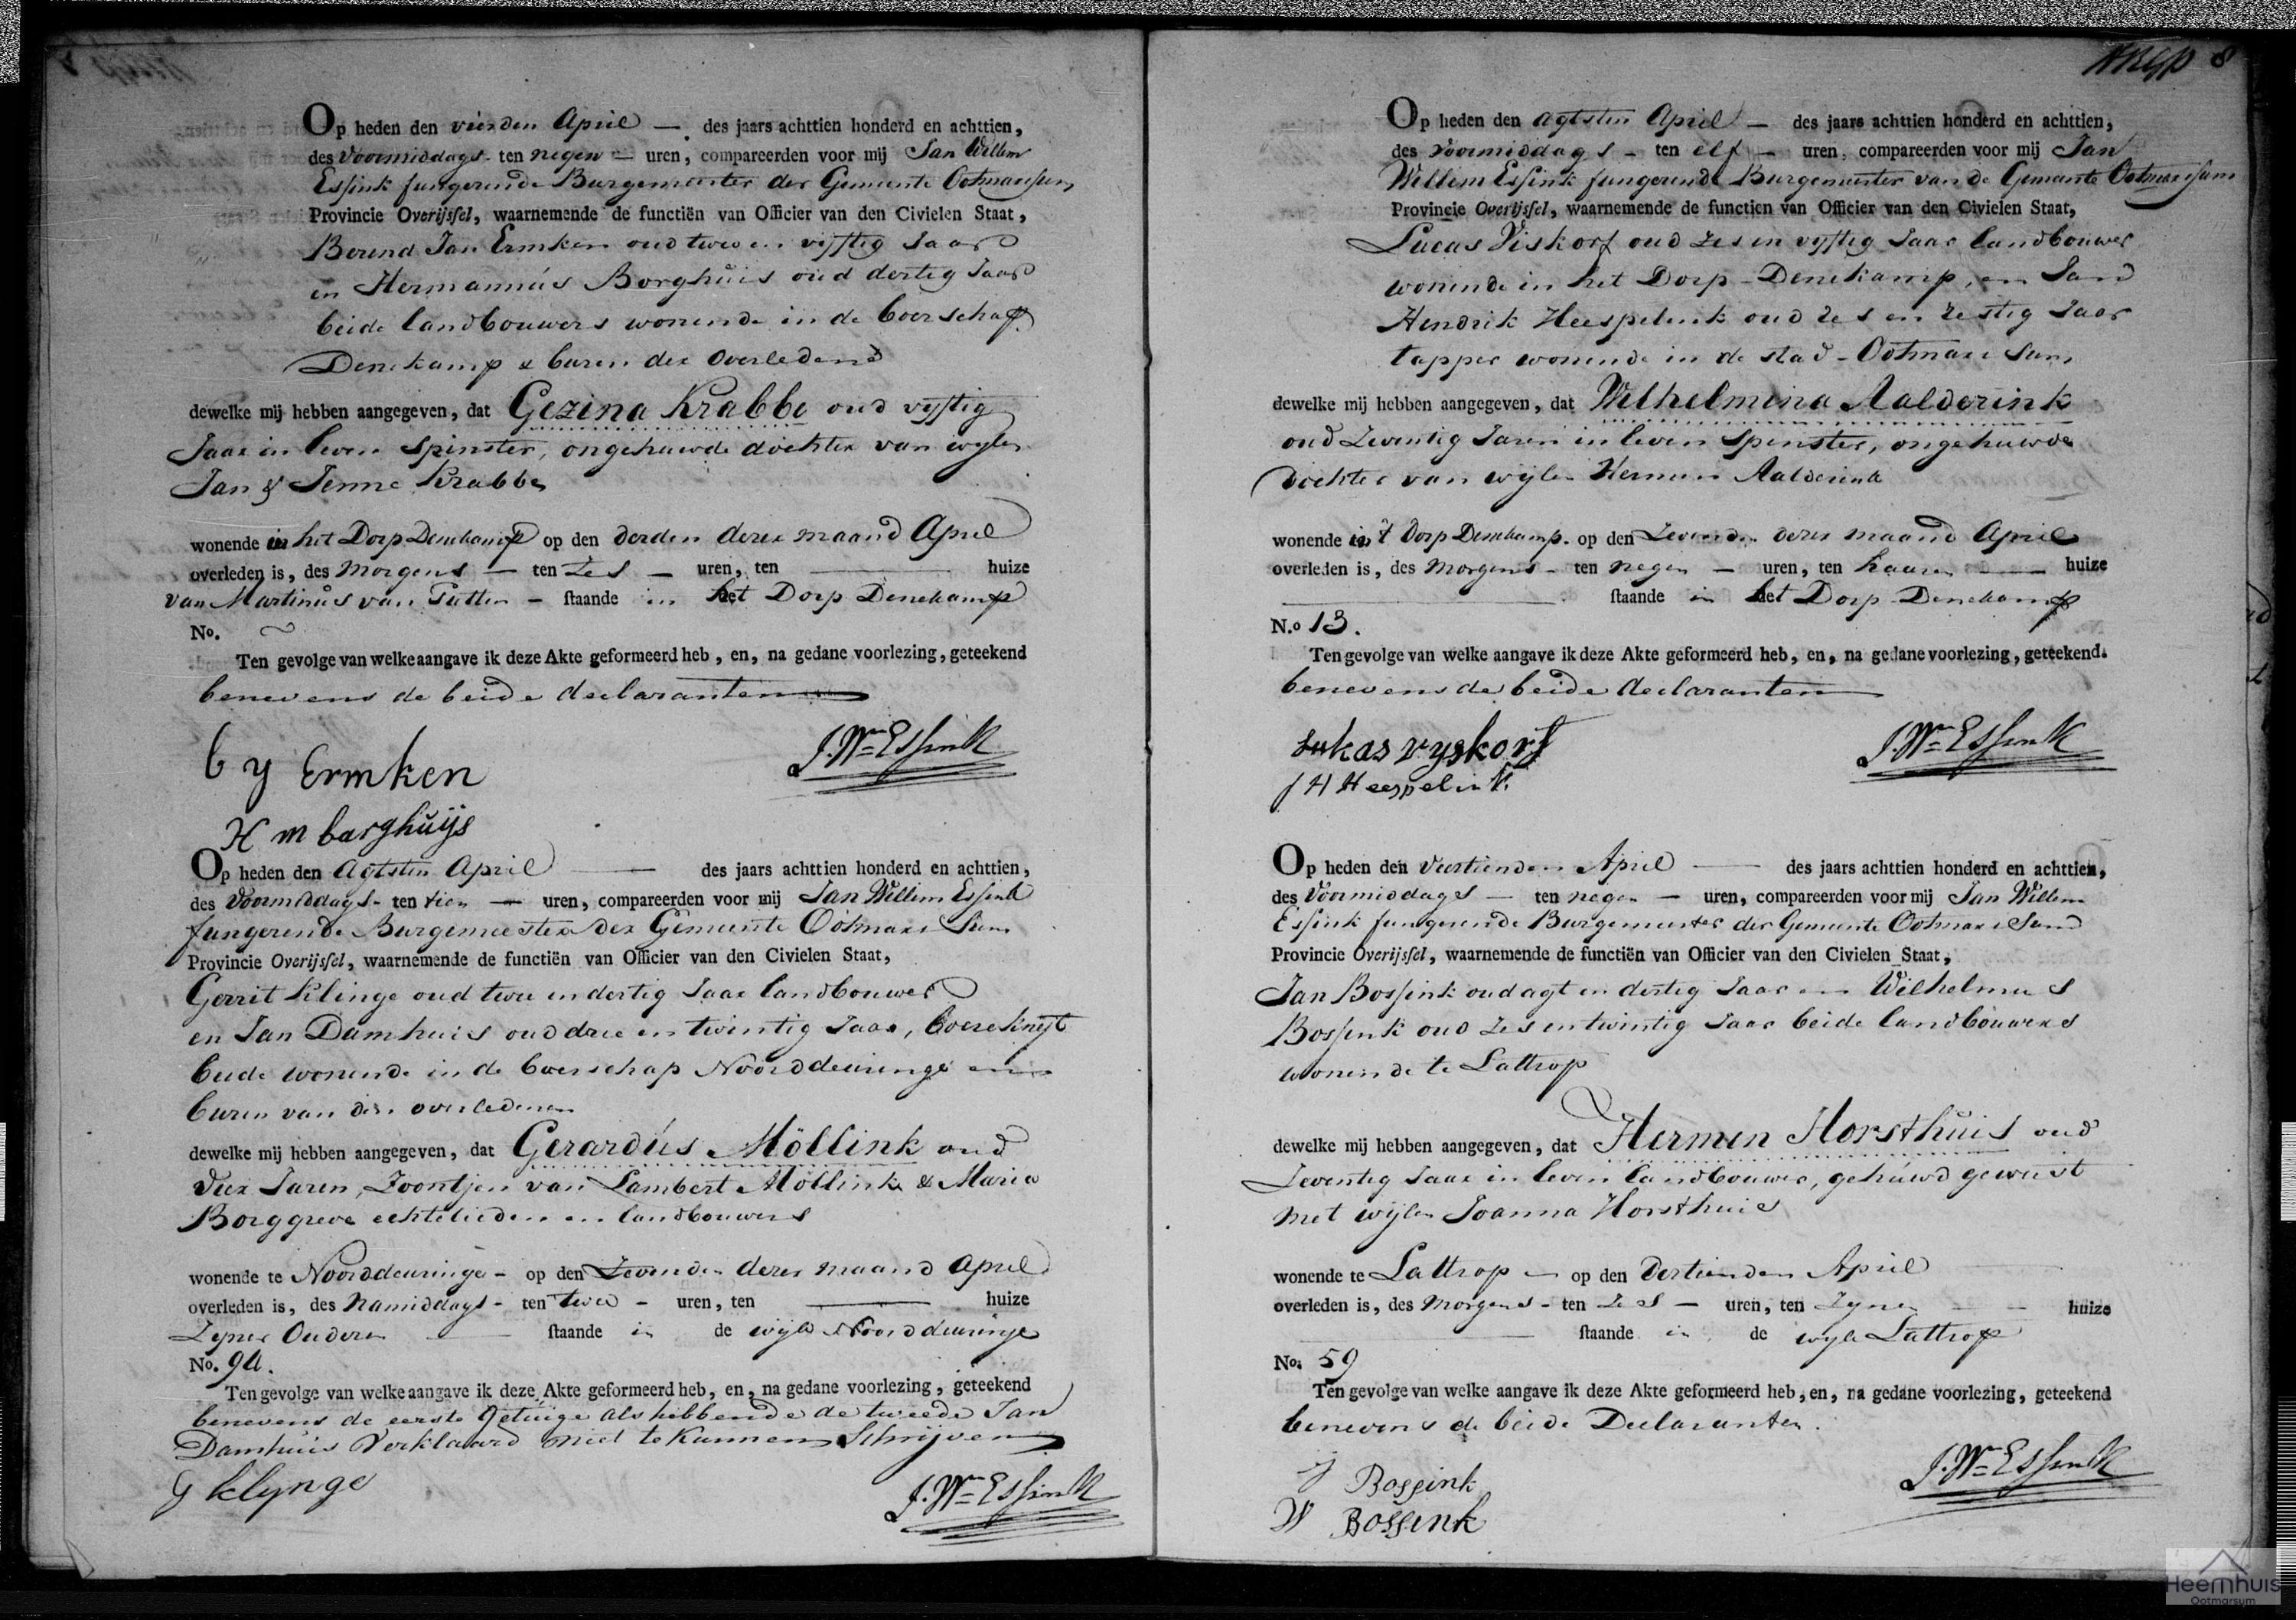 Op heden den vierden April — des jaars achttien honderd en achttien,
des Voormiddags - ten negen — uren, compareerden voor mij Jan Willem
Essink fungerende Burgemeester der Gemeente Ootmarssum
Provincie Overijssel, waarnemende de functiën van Officier van den Civielen Staat,
Berend Jan Ermken oud twee en vyftig Jaar
en Hermannus Borghuis oud dertig Jaar
beide landbouwers wonende in de boerschap
Denekamp & buren der overledene
dewelke mij hebben aangegeven, dat Gezina Krabbe oud vyftig
Jaar in leven Spinster, ongehuwde dochter van wylen
Jan & Jenne Krabbe
wonende in het Dorp Denekamp op den derden dezer maand April
overleden is, des Morgens — ten Zes — uren, ten — huize
van Martinus van Tutten - staande in het Dorp Denekamp
No.
Ten gevolge van welke aangave ik deze Akte geformeerd heb, en, na gedane voorlezing, geteekend
benevens de beide declaranten
b y Ermken
J. Wm Essink
H m barghuijs
Op heden den Agtsten April — des jaars achttien honderd en achttien,
des Voormiddags - ten tien — uren, compareerden voor mij Jan Willem Essink
fungerende Burgemeester der Gemeente Ootmarssum
Provincie Overijssel, waarnemende de functiën van Officier van den Civielen Staat,
Gerrit Klinge oud twee en dertig Jaar landbouwer
en Jan Damhuis oud drie en twintig Jaar, boereknegt
beide wonende in de boerschap Noorddeuringe en
buren van den overledenen
dewelke mij hebben aangegeven, dat Gerardús Möllink oud
vier Jaren, Zoontjen van Lambert Möllink & Maria
Borggreve echtelieden en landbouwers
wonende te Noorddeuringe - op den Zevenden dezer maand April
overleden is, des Namiddags - ten twee - uren, ten — huize
Zyner Ouderen — staande in de wijk Noorddeuringe
No. 94.
Ten gevolge van welke aangave ik deze Akte geformeerd heb, en, na gedane voorlezing, geteekend
benevens de eerste getuige als hebbende de tweede Jan
Damhuis Verklaard niet te kunnen Schrijven
G klynge
J. Wm Essink
8
Op heden den agtsten April — des jaars achttien honderd en achttien,
des Voormiddags - ten elf - uren, compareerden voor mij Jan
Willem Essink fungerende Burgemeester van de Gemeente Ootmarssum
Provincie Overijssel, waarnemende de functien van Officier van den Civielen Staat,
Lucas Viskorf oud Zes en vyftig Jaar landbouwer
wonende in het Dorp - Denekamp, en Jan
Hendrik Heespelink oud Zes en Zestig Jaar
tapper wonende in de stad - Ootmarssum
dewelke mij hebben aangegeven, dat Wilhelmina Aalderink
oud Zeventig Jaren in leven Spinster, ongehuwde
dochter van wijlen Hermen Aalderink
wonende in 't Dorp Denekamp. op den Zevenden dezer maand April
overleden is, des Morgens - ten negen — uren, ten haaren — huize
staande in het Dorp Denekamp
N.o 13.
Ten gevolge van welke aangave ik deze Akte geformeerd heb, en, na gedane voorlezing, geteekend.
benevens de beide declaranten
Lukas vyskorf
J. Wm Essink
J H Heespelink
Op heden den veertienden April — des jaars achttien honderd en achttien,
des Voormiddags — ten negen — uren, compareerden voor mij Jan Willem
Essink fungerende Burgemeester der Gemeente Ootmarssum
Provincie Overijssel, waarnemende de functiën van Officier van den Civielen Staat,
Jan Bossink oud agt en dertig Jaar en Wilhelmus
Bossink oud Zes en twintig Jaar beide landbouwers
wonende te Lattrop
dewelke mij hebben aangegeven, dat Hermen Horsthuis oud
Zeventig Jaar in leven landbouwer, gehuwd geweest
met wijlen Joanna Horsthuis
wonende te Lattrop — op den dertienden April
overleden is, des Morgens - ten Zes — uren, ten Zynen — huize
staande in de wyk Lattrop
No. 59
Ten gevolge van welke aangave ik deze Akte geformeerd heb, en, na gedane voorlezing, geteekend
benevens de beide Declaranten.
J Bossink
J. Wm Essink
W Bossink
Heemhuis
Ootmarsum